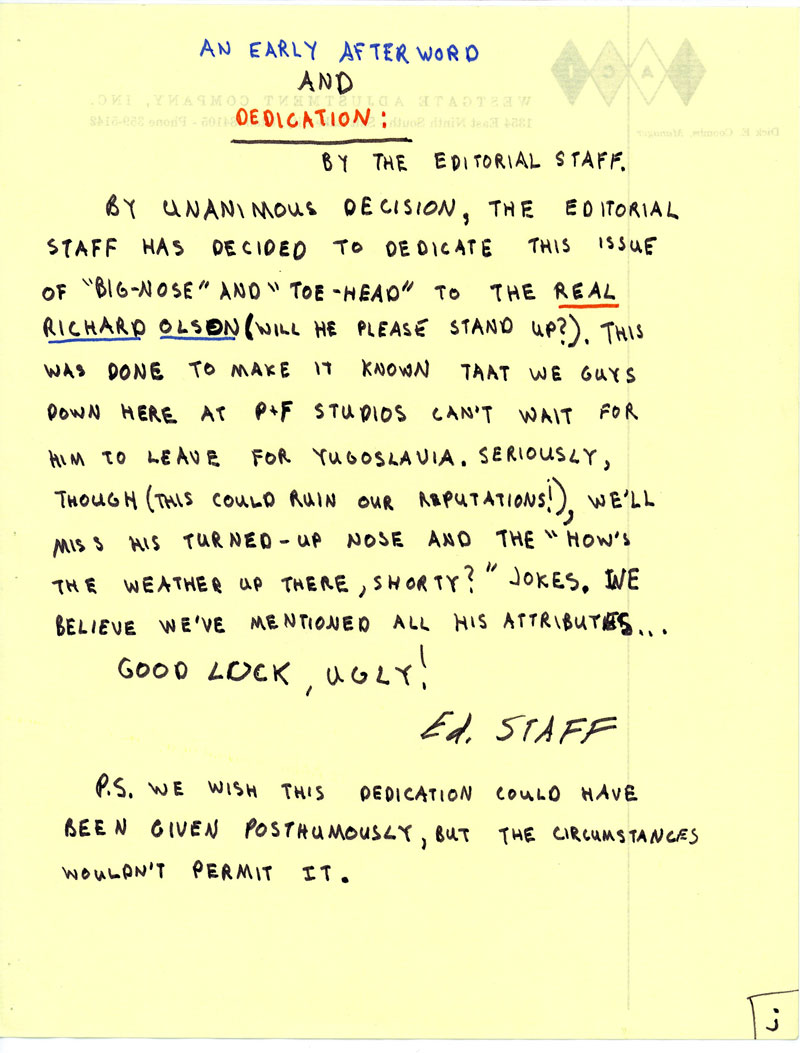 AN EARLY AFTERWORD
AND
DEDICATION:
BY THE EDITORIAL STAFF.
BY UNANIMOUS DECISION, THE EDITORIAL
STAFF HAS DECIDED TO DEDICATE THIS ISSUE
OF "BIG-NOSE" AND "TOE-HEAD" TO THE REAL
RICHARD OLSON (WILL HE PLEASE STAND UP?). THIS
WAS DONE TO MAKE IT KNOWN TAAT WE GUYS
DOWN HERE AT P+F STUDIOS CAN'T WAIT FOR
HIM TO LEAVE FOR YUGOSLAVIA. SERIOUSLY,
THOUGH (THIS COULD RUIN OUR REPUTATIONS!), WE'LL
MISS HIS TURNED-UP NOSE AND THE "HOW'S
THE WEATHER UP THERE, SHORTY?" JOKES. WE
BELIEVE WE'VE MENTIONED ALL HIS ATTRIBUTES...
GOOD LUCK, UGLY!
Ed. STAFF
P.S. WE WISH THIS DEDICATION COULD HAVE
BEEN GIVEN POSTHUMOUSLY, BUT THE CIRCUMSTANCES
WOULDN'T PERMIT IT.
j
ACI
WESTGATE ADJUSTMENT COMPANY, INC.
1354 East Ninth South, 84105 - Phone 359-5142
Dick E. Coombs, Manager